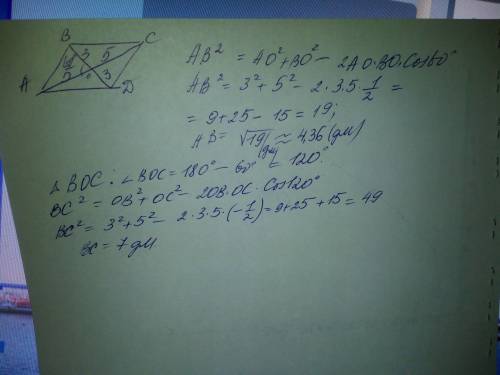 B
C
3
5
5
3
A
D
AB² = AO² + BO² - 2AO·BO·Cos60°
AB² = 3² + 5² - 2·3·5·1/2 =
= 9+25-15 = 19;
AB = √19 ≈ 4,36 (дм)
(дм)
△ BOC: ∠BOC = 180° - 60° = 120°
BC² = OB² + OC² - 2OB·OC·Cos120°
BC² = 3² + 5² - 2·3·5·(-1/2) = 9+25+15 = 49
BC = 7 дм